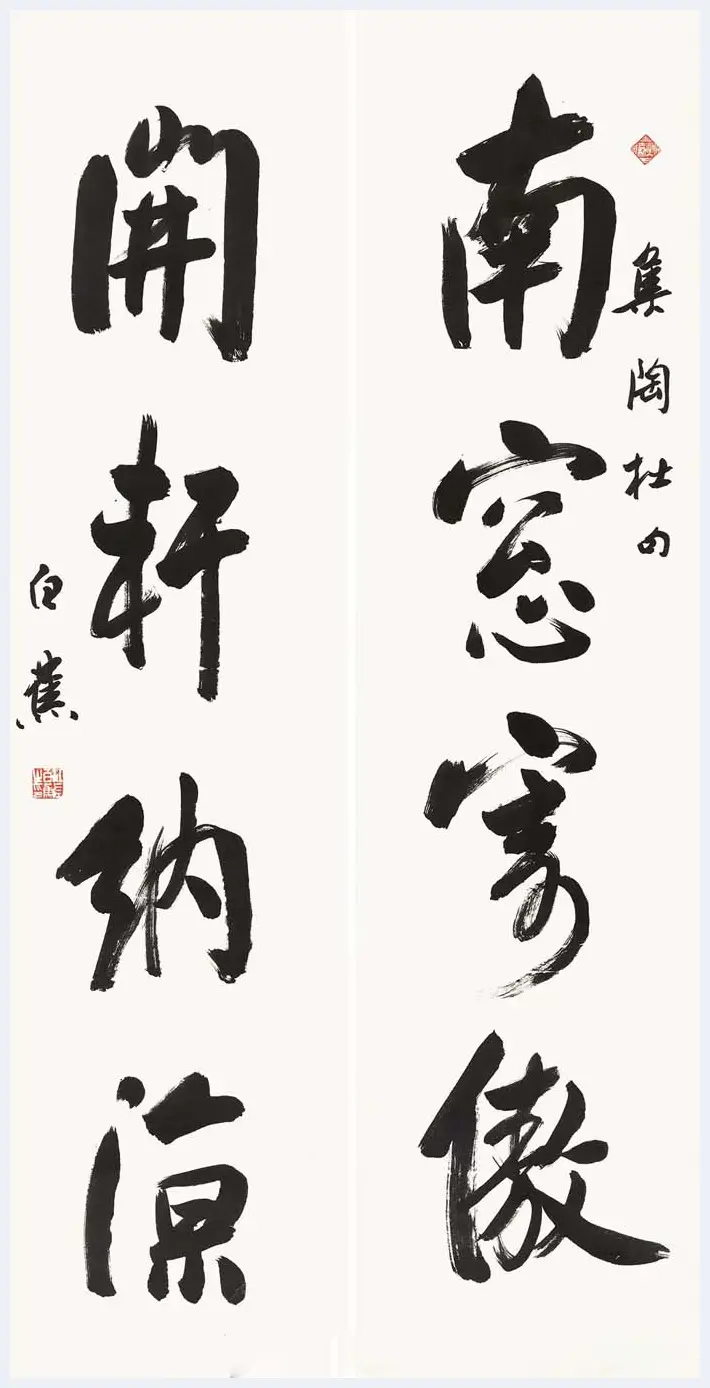 集陶杜句
南窓寄傲
開軒納涼
白蕉